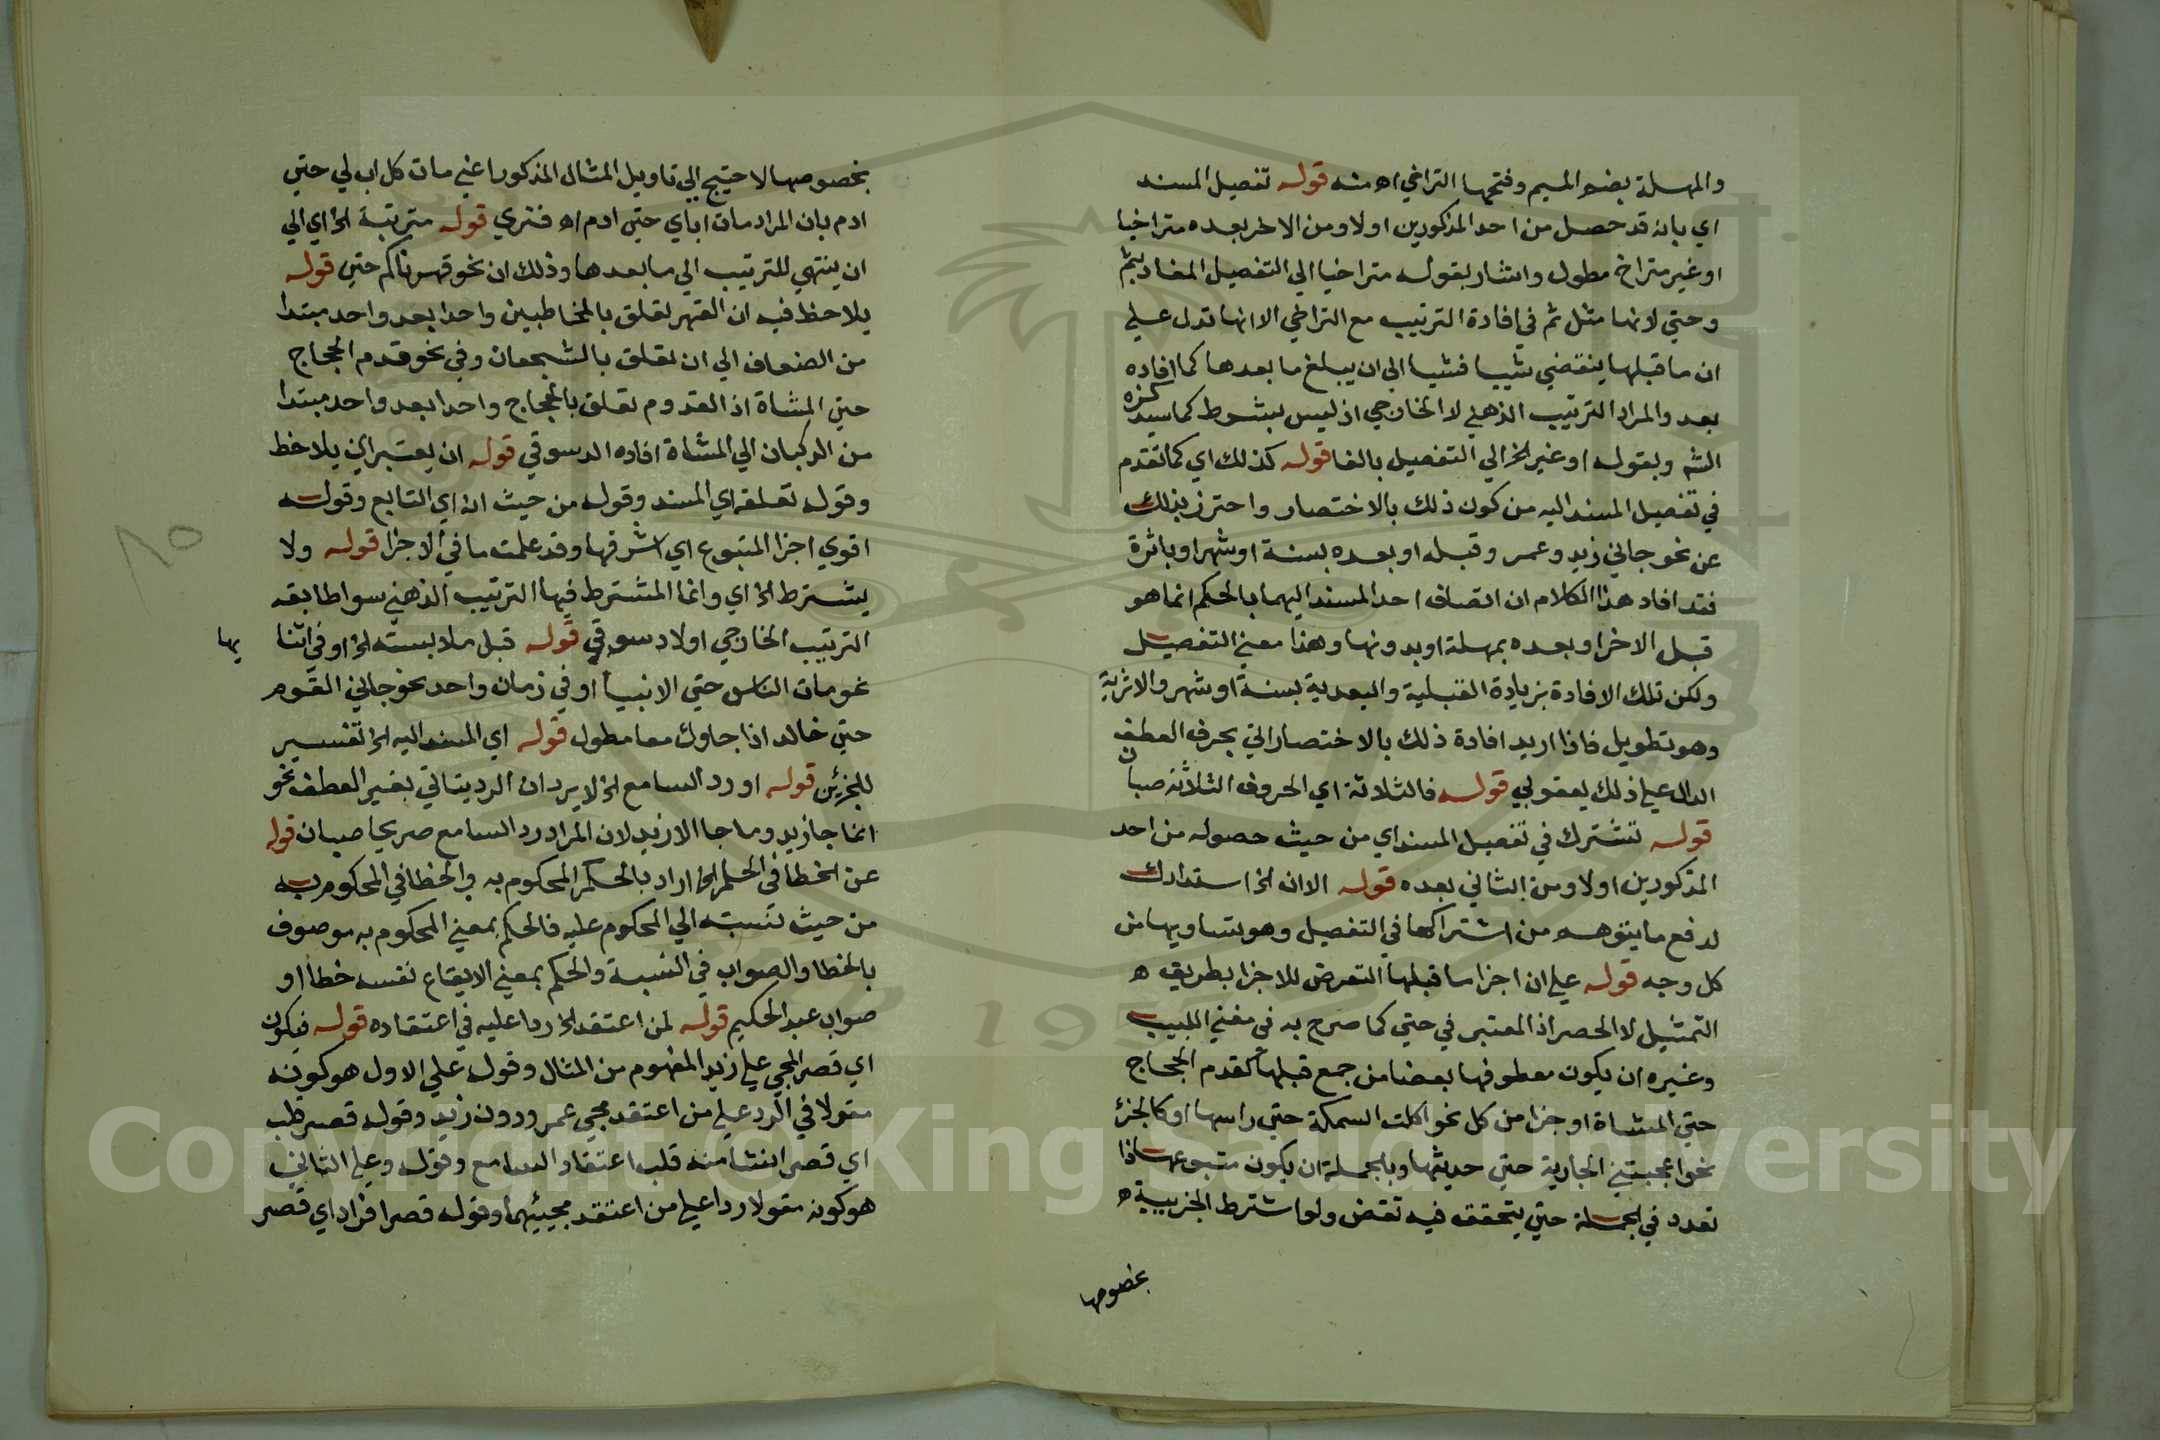 والمهلة بضم الميم وفتحها التراخي اه منه قوله تفصيل المسند
اي بانه قد حصل من احد المذكورين اولا ومن الاخر بعده متراخيا
او غير متراخ مطول واشار بقوله متراخيا الي التفصيل المفاد بثم
وحتي لانها مثل ثم في افادة الترتيب مع التراخي الا انها تدل علي
ان ما قبلها ينقضي شييا فشيا الي ان يبلغ ما بعدها كما افاده
بعد والمراد الترتيب الذهني لا الخارجي اذ ليس بشرط كما سيذكره
الشم وبقوله او غير الخ الي التفصيل بالفا قوله كذلك اي كما تقدم
في تفصيل المسند اليه من كون ذلك بالاختصار واحترز بذلك
عن نحو جاني زيد وعمر وقبله او بعده بسنة او شهر او باثرة
فقد افاد هذا الكلام ان اتصاف احد المسند اليهما بالحكم انما هو
قبل الاخر او بعده بمهلة او بدونها وهذا معني التفصيل
ولكن تلك الافادة بزيادة القبلية والبعدية بسنة او شهر والاثرية
وهو تطويل فاذا اريد افادة ذلك بالاختصار اتي بحرف العطف
الدال علي ذلك يعقوبي قوله فالثلاثة اي الحروف الثلاثة صبان
قوله تشترك في تفصيل المسند اي من حيث حصوله من احد
المذكورين اولا ومن الثاني بعده قوله الا انه الخ استدراك
لدفع ما يتوهم من اشتراكها في التفصيل وهو تساويها من
كل وجه قوله علي ان اجزا ما قبلها التعرض للاجزا بطريق ه
التمثيل لا الحصر اذ المعتبر في حتي كما صرح به في مغني اللبيب
وغيره ان يكون معطوفها بعضا من جمع قبلها كقدم الحجاج
حتي المشاة او جزا من كل نحو اكلت السمكة حتي راسها او كالجزئ
نحو اعجبتني الجارية حتي حديثها وبالجملة ان يكون متبوعها ذا
تعدد في الجملة حتي يتحقق فيه تقض ولو اشترط الجزييية ه
بخصوصها
بخصوصها لاحتيج الي تاويل المثال المذكور اعني مات كل اب لي حتي
ادم بان المراد مات اباي حتي ادم اه فنري قوله مترتبة الخ اي الي
ان ينتهي الترتيب الي ما بعدها وذلك ان نحو قهرناكم حتي قوله
يلاحظ فيه ان القهر تعلق بالمخاطبين واحدا بعد واحد مبتدا
من الضعاف الي ان تعلق بالشجعان وفي نحو قدم الحجاج
حتي المشاة اذ القدوم تعلق بالحجاج واحدا بعد واحد مبتدا
من الركبان الي المشاة افاده الدسوقي قوله ان يعتبر اي يلاحظ
وقوله تعلقه اي المسند وقوله من حيث انه اي التابع وقوله
اقوي اجزا المتبوع اي اشرفها وقد علمت ما في الاجزا قوله ولا
يشترط الخ اي وانما المشترط فيها الترتيب الذهني سوا طابقه
الترتيب الخارجي اولا دسوقي قوله قبل ملابسته الخ او في اثنا
يها
نحو مات الناس حتي الانبيا او في زمان واحد نحو جاني القوم
حتي خالد اذا جاوك معا مطول قوله اي المسند اليه الخ تفسير
للجزئين قوله او رد السامع الخ لا يرد ان الرد يتاتي بغير العطف نحو
انما جا زيد وما جا الا زيد لان المراد رد السامع صريحا صبان قوله
عن الخطا في الحكم الخ اراد بالحكم المحكوم به والخطا في المحكوم به
من حيث نسبته الي المحكوم عليه فالحكم بمعني المحكوم به موصوف
بالخطا والصواب في النسبة والحكم بمعني الايقاع نفسه خطا او
صواب عبد الحكيم قوله لمن اعتقد الخ ردا عليه في اعتقاده قوله فيكون
اي قصر المجي علي زيد المفهوم من المثال وقوله علي الاول هو كونه
مقولا في الرد علي من اعتقد مجي عمر ودون زيد وقوله قصر قلب
اي قصر انشا منه قلب اعتقاد السامع وقوله وعلي الثاني
هو كونه مقولا ردا علي من اعتقد مجيئهما وقوله قصر افراد اي قصر
٨٥
Copyright © King Saud University
1957